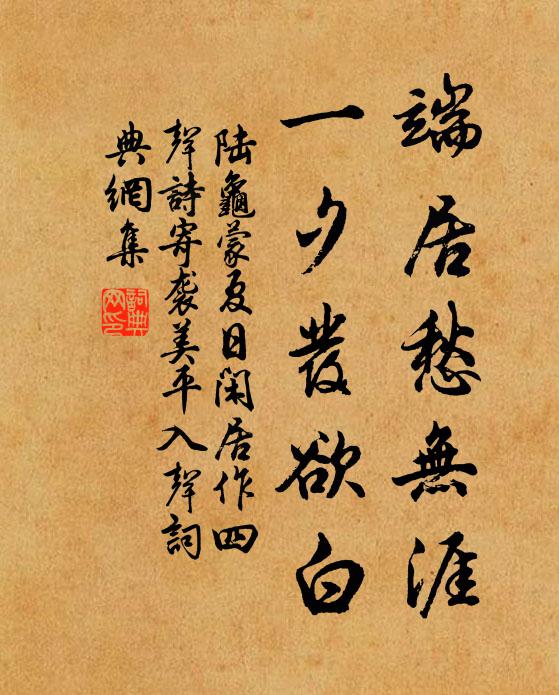 端居愁無涯
一夕髮欲白
陸龜蒙夏日閑居作四
聲詩寄襲美平入聲詞
典網集
詞典網印